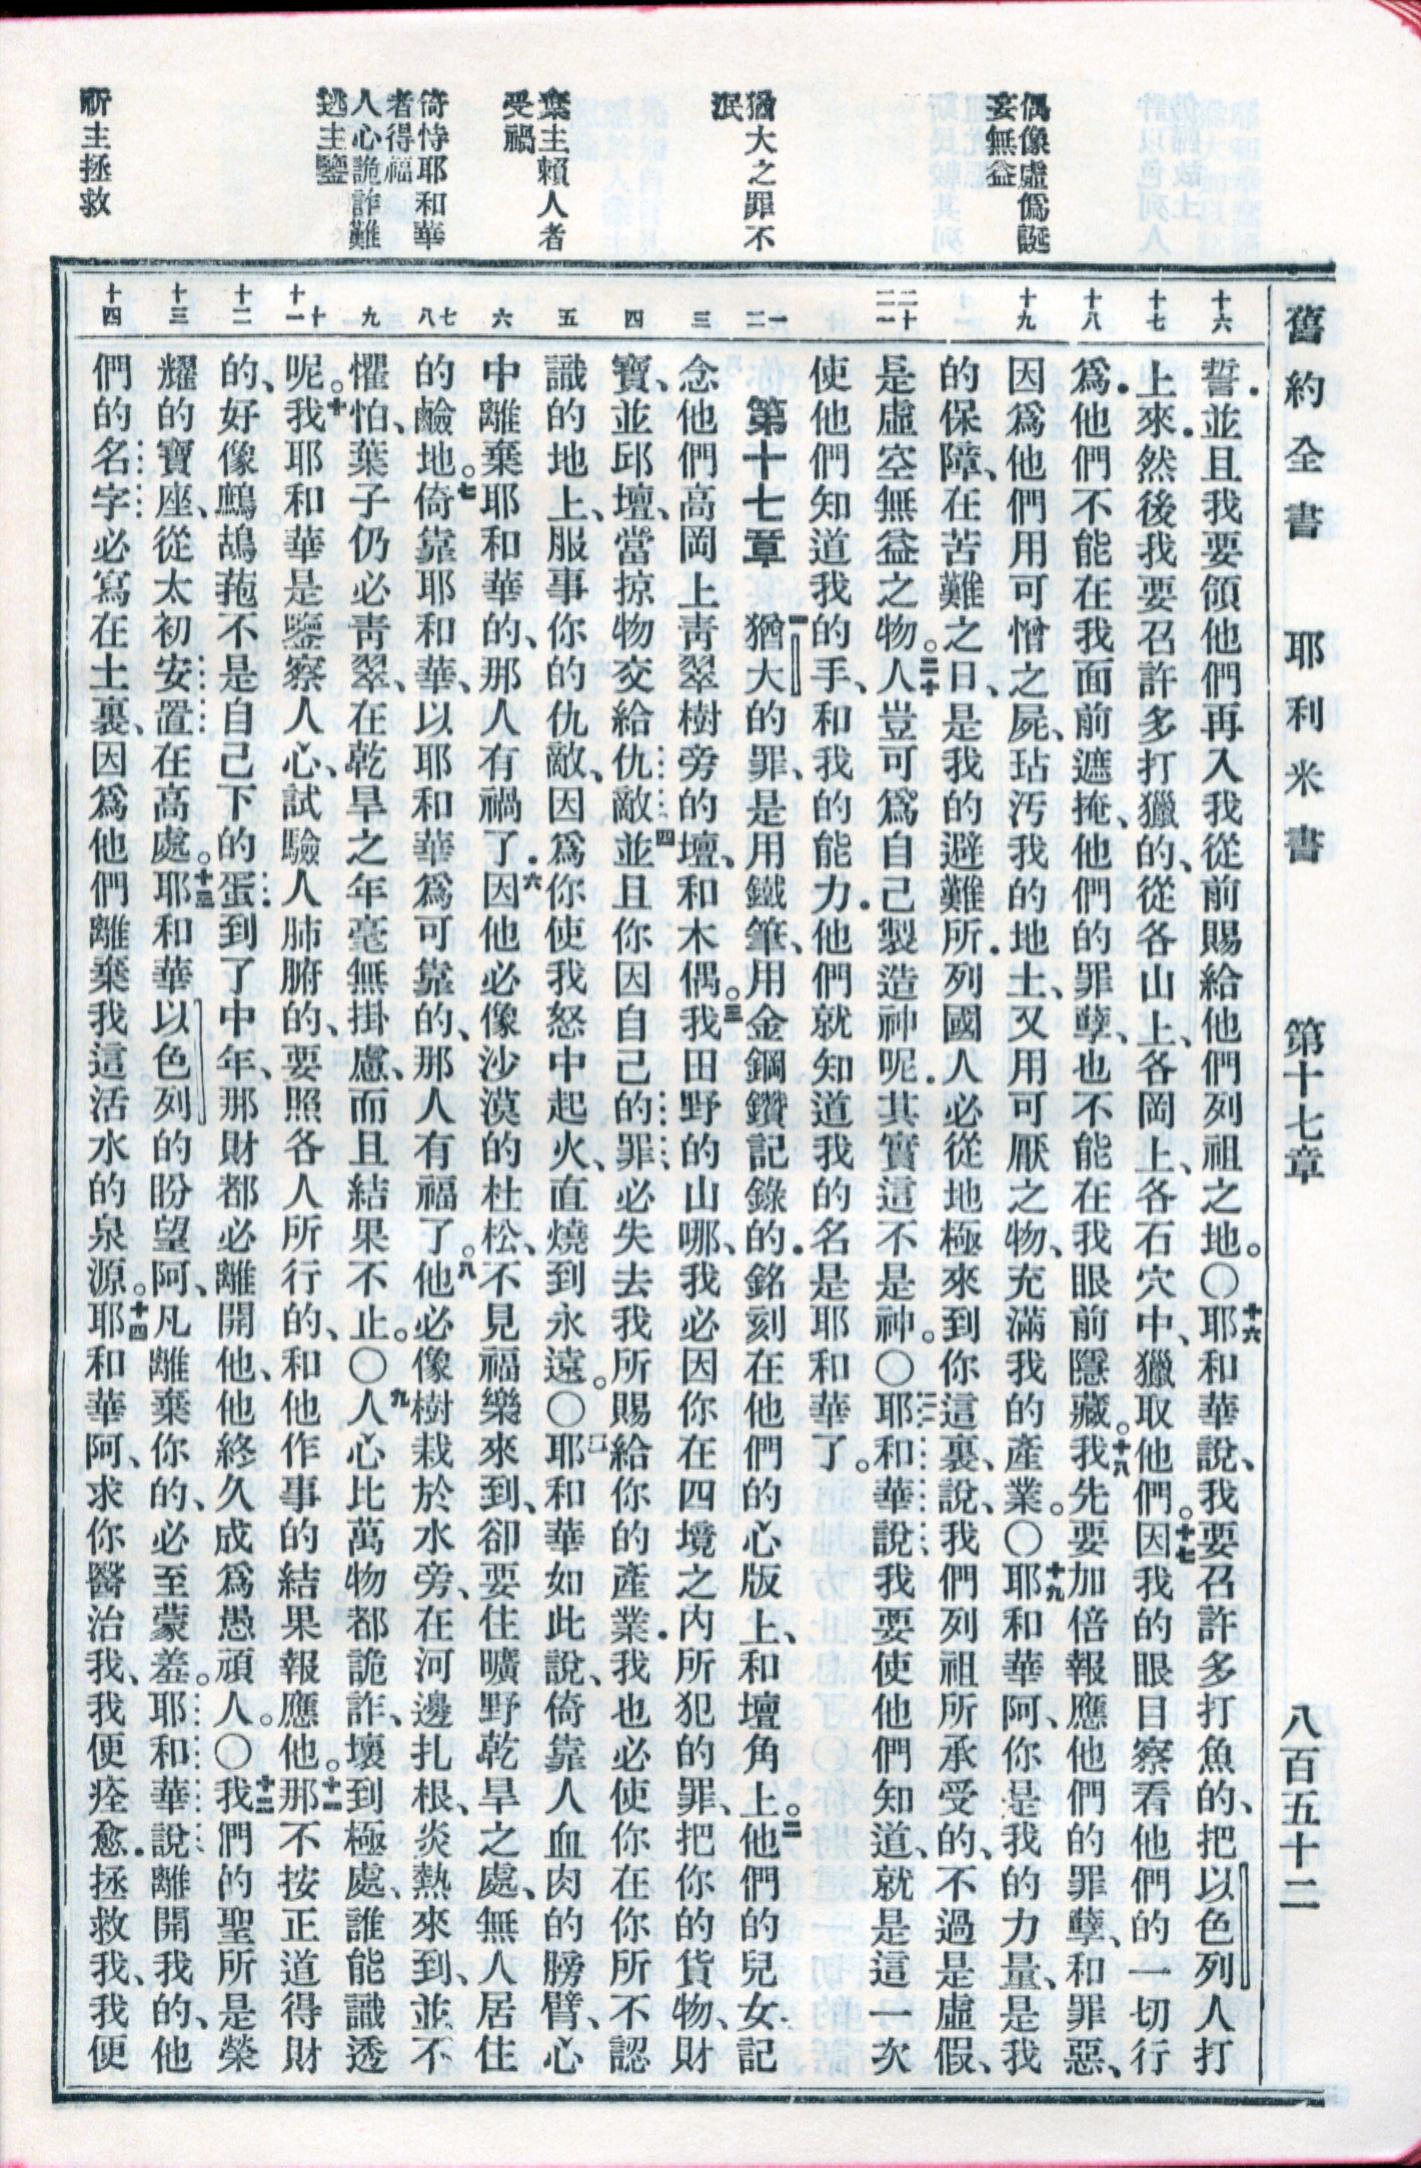 舊約全書　耶利米書　第十七章　八百五十二
偶像虛僞誕
妄無益
猶大之罪不
泯
棄主賴人者
受禍
倚恃耶和華
者得福
人心詭詐難
逃主鑒
祈主拯救
十六
誓．並且我要領他們再入我從前賜給他們列祖之地。○十六耶和華說、我要召許多打魚的、把以色列人打
十七
上來．然後我要召許多打獵的、從各山上、各岡上、各石穴中、獵取他們。十七因我的眼目察看他們的一切行
十八
爲．他們不能在我面前遮掩、他們的罪孽、也不能在我眼前隱藏。十八我先要加倍報應他們的罪孽、和罪惡、
十九
因爲他們用可憎之屍、玷汚我的地土、又用可厭之物、充滿我的產業。○十九耶和華阿、你是我的力量、是我
的保障、在苦難之日、是我的避難所．列國人必從地極來到你這裏、說、我們列祖所承受的、不過是虛假、
二十
二一
是虛空無益之物。二十人豈可爲自己製造神呢．其實這不是神。○二一耶和華說我要使他們知道、就是這一次
使他們知道我的手、和我的能力．他們就知道我的名是耶和華了。
一
二
第十七章　一猶大的罪、是用鐵筆、用金鋼鑽記錄的．銘刻在他們的心版上、和壇角上。二他們的兒女記
三
念他們高岡上靑翠樹旁的壇、和木偶。三我田野的山哪、我必因你在四境之內所犯的罪、把你的貨物、財
四
寶、並邱壇、當掠物交給仇敵．四並且你因自己的罪、必失去我所賜給你的產業．我也必使你在你所不認
五
識的地上、服事你的仇敵、因爲你使我怒中起火、直燒到永遠。○五耶和華如此說、倚靠人血肉的膀臂、心
六
中離棄耶和華的、那人有禍了．六因他必像沙漠的杜松、不見福樂來到、卻要住曠野乾旱之處、無人居住
七
八
的鹼地。七倚靠耶和華、以耶和華爲可靠的、那人有福了。八他必像樹栽於水旁、在河邊扎根、炎熱來到、並不
九
懼怕、葉子仍必靑翠、在乾旱之年毫無掛慮、而且結果不止。○九人心比萬物都詭詐、壞到極處、誰能識透
十
十一
呢。十我耶和華是鑒察人心、試驗人肺腑的、要照各人所行的、和他作事的結果報應他。十一那不按正道得財
十二
的、好像鷓鴣菢不是自己下的蛋．到了中年、那財都必離開他、他終久成爲愚頑人。○十二我們的聖所是榮
十三
耀的寶座、從太初安置在高處。十三耶和華以色列的盼望阿、凡離棄你的、必至蒙羞。耶和華說離開我的、他
十四
們的名字必寫在土裏、因爲他們離棄我這活水的泉源。十四耶和華阿、求你醫治我、我便痊愈．拯救我、我便